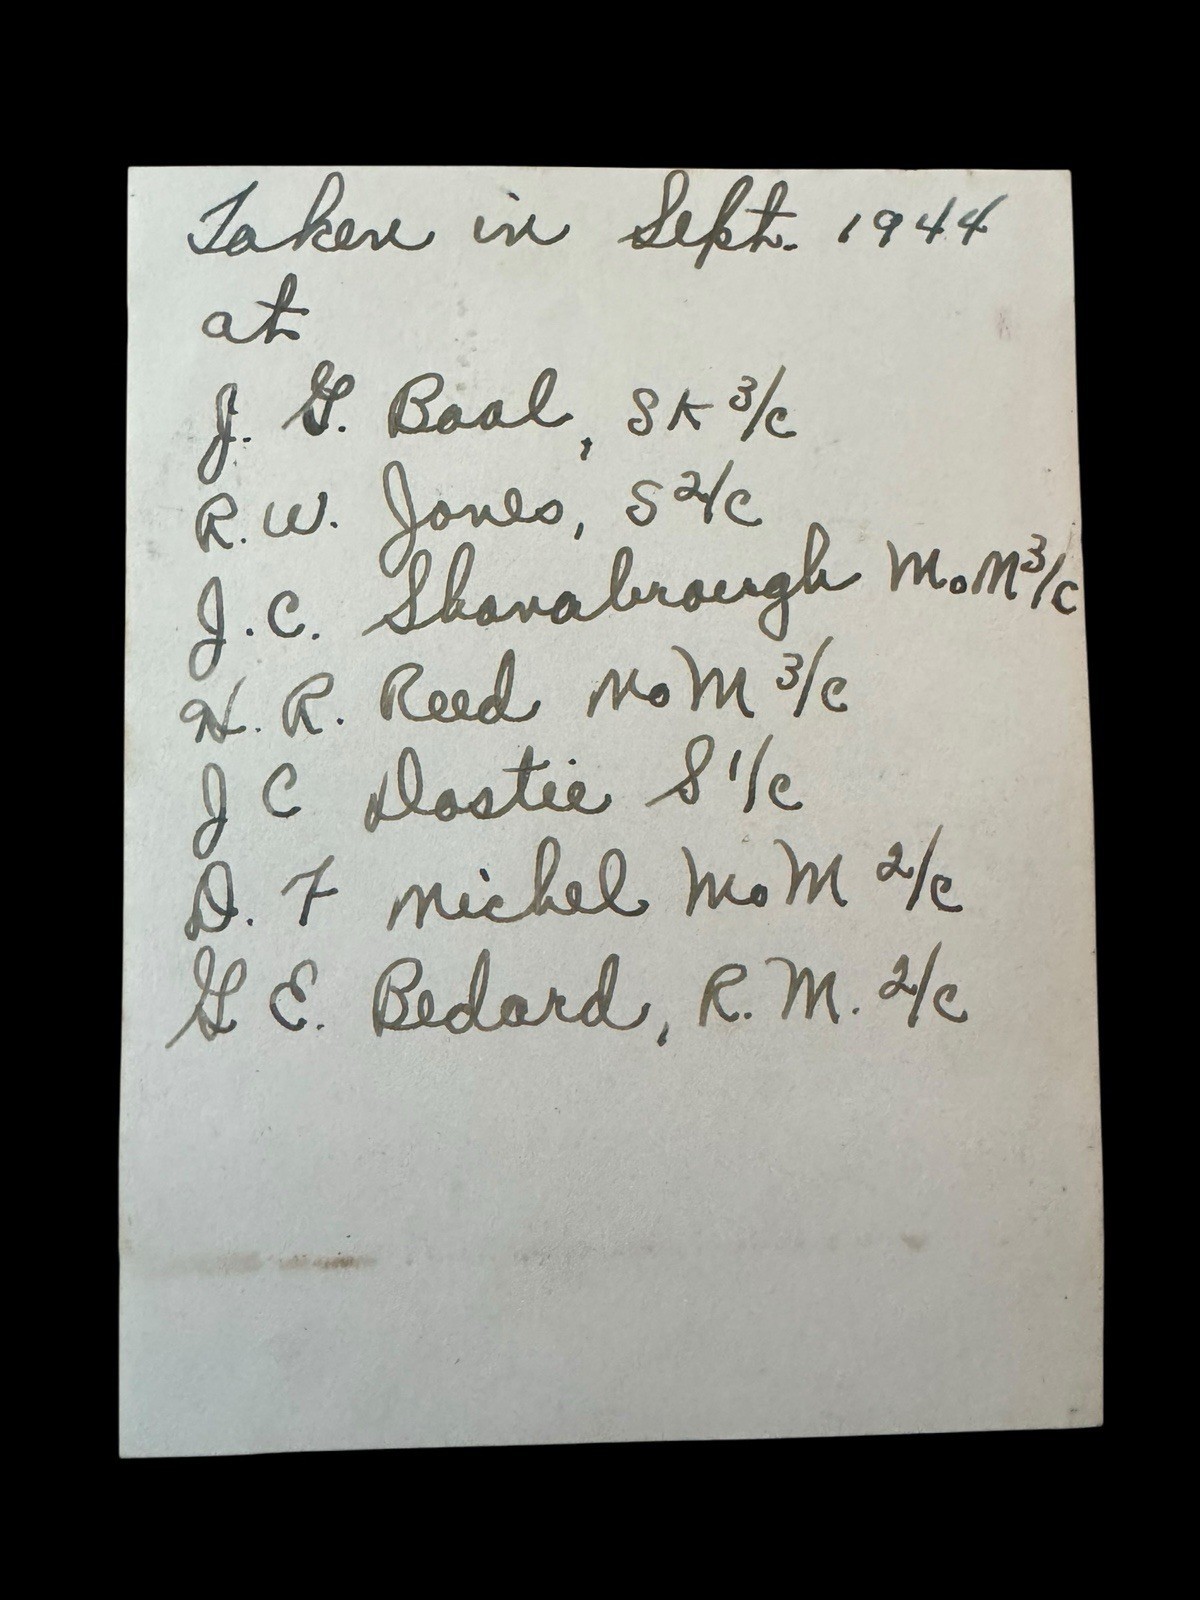 Taken in Sept. 1944
at
J. G. Baal, SK 3/c
R. W. Jones, S 2/c
J. C. Shanabrough MoM 3/c
H. R. Reed MoM 3/c
J C Dostie S 1/c
D. F Michel MoM 2/c
G E. Bedard, R. M. 2/c